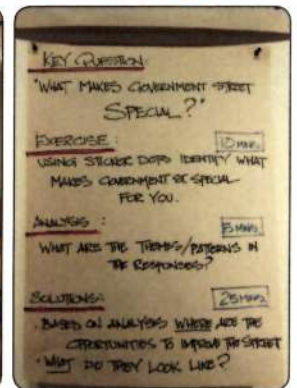 KEY QUESTION:
"WHAT MAKES GOVERNMENT STREET
SPECIAL?"
EXERCISE: 10 MINS.
USING STICKER DOTS IDENTIFY WHAT
MAKES GOVERNMENT ST SPECIAL
FOR YOU.
ANALYSIS: 5 MINS.
WHAT ARE THE THEMES/PATTERNS IN
THE RESPONSES?
SOLUTIONS: 25 MINS.
• BASED ON ANALYSIS WHERE ARE THE
OPPORTUNITIES TO IMPROVE THE STREET
• WHAT DO THEY LOOK LIKE?